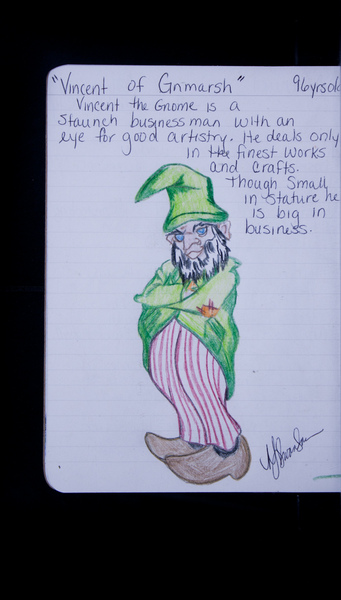 "Vincent of Gnmarsh" 96yrsold
Vincent the Gnome is a
staunch businessman with an
eye for good artistry. He deals only
in the finest works
and crafts.
Though small
in stature he
is big in
business.